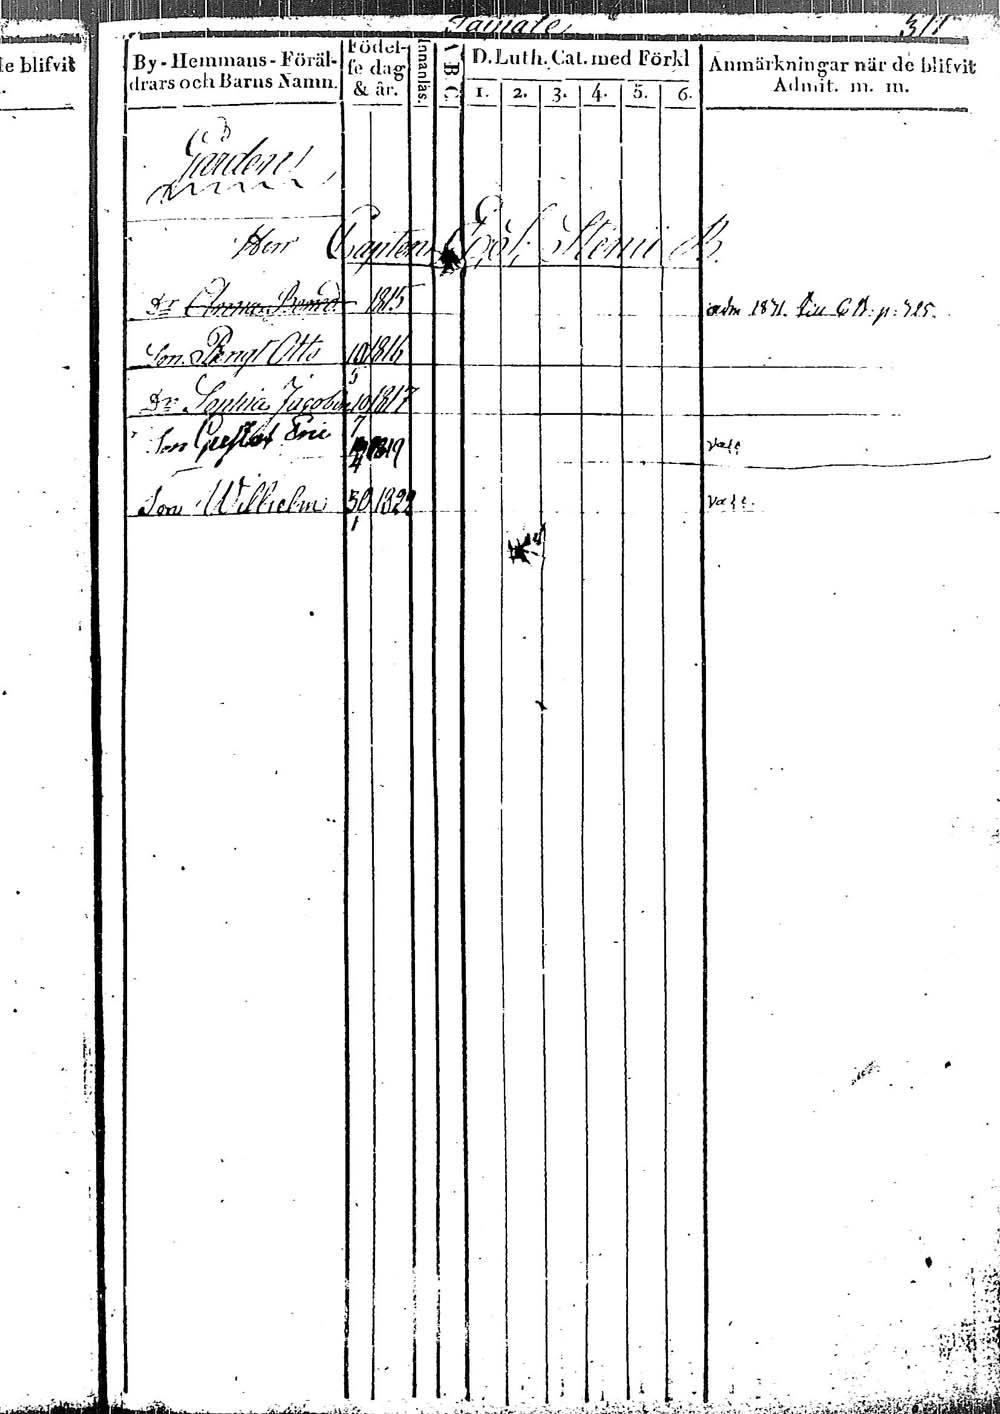 311
le blifvit
By-Hemmans-Föräl-
drars och Barns Namn.
Födel-
se dag
& år.
Innanläs.
A B C
D. Luth. Cat. med Förkl
1. 2. 3. 4. 5. 6.
Anmärkningar när de blifvit
Admit. m. m.
Gården
Herr Capten
Dr 1815
adm 1831. till p. 325.
Son Bengt Otto 10/5 1816
Dr Sophia Jacobin 10/7 1817
Son Gustaf Eric /4 1819
Vacc
Son Wilhelm 30/1 1822
Vacc.